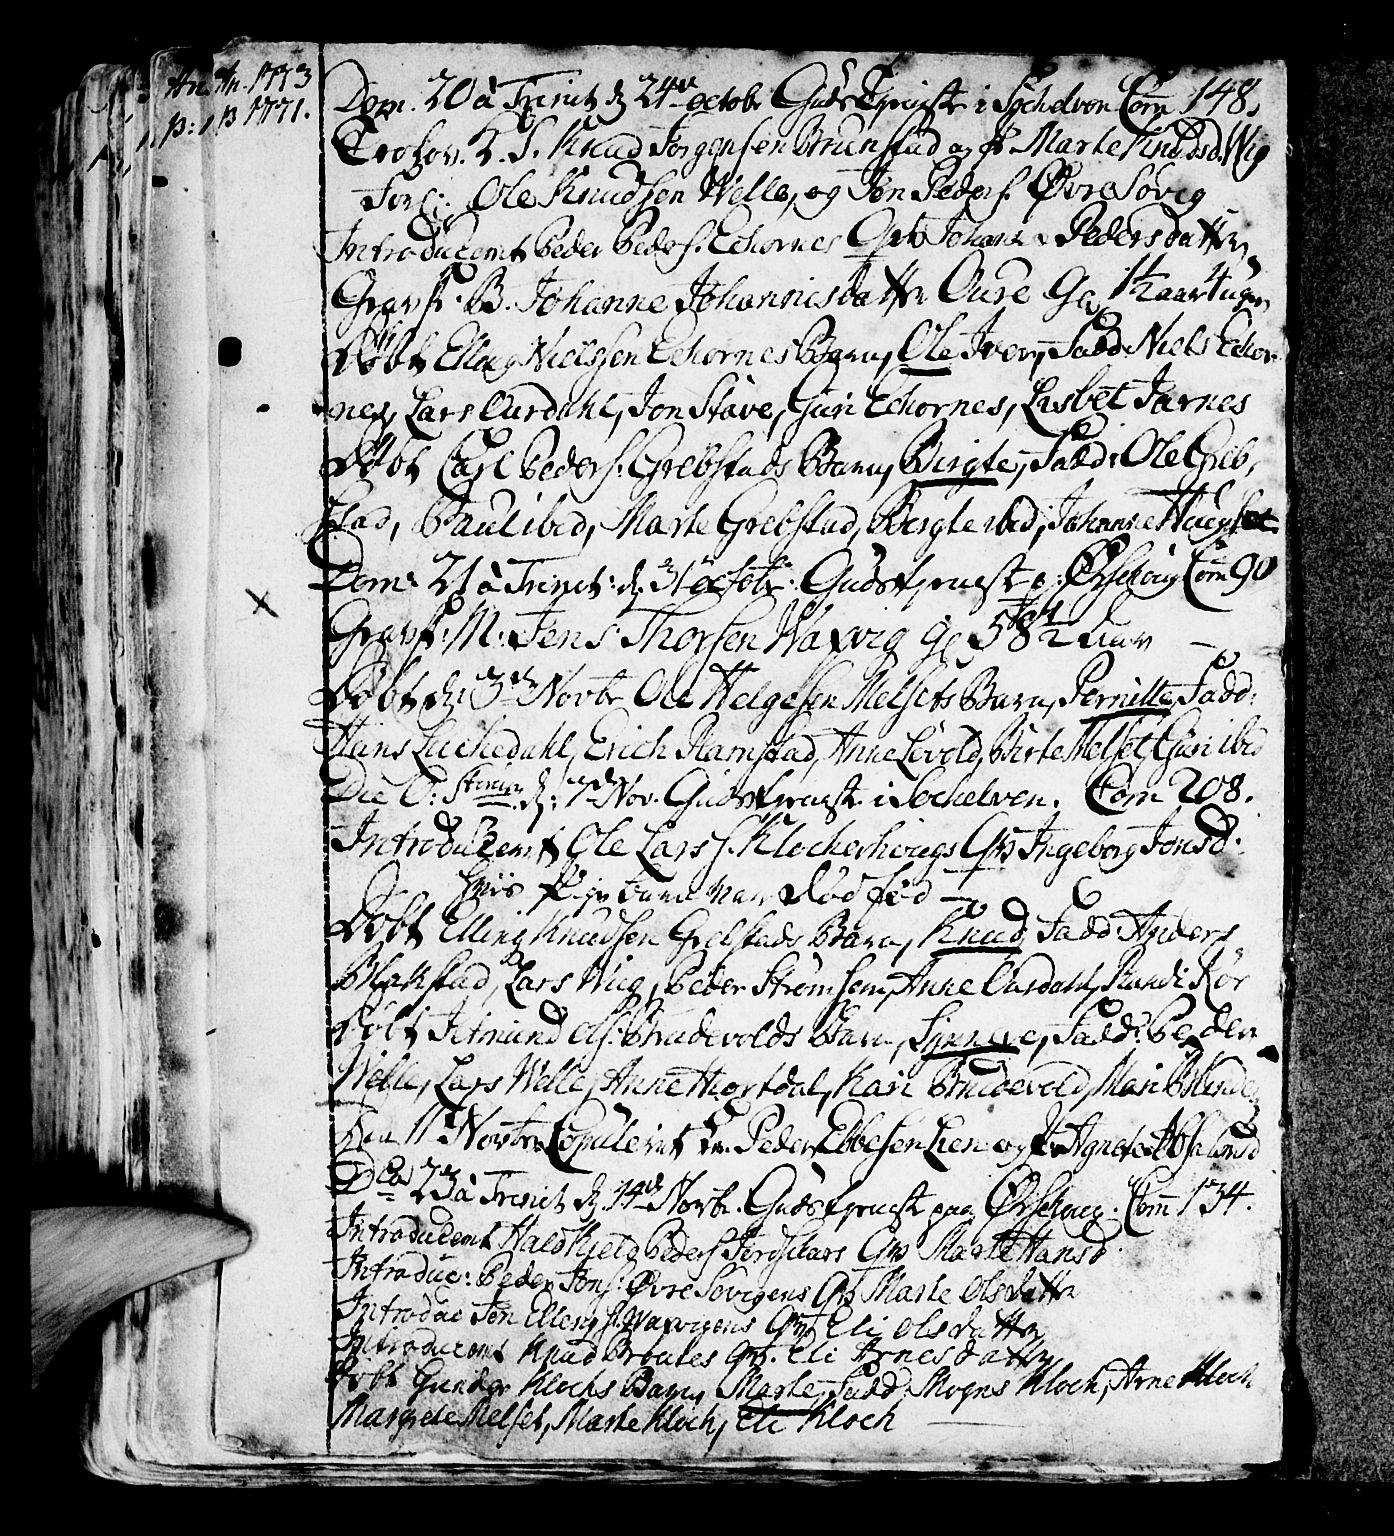 1773
1771.
Dom. 20 à Trinit. d 24de octobr Gudstjenest i Søchelven Com 148.
Trolov. K. S. Knud Jørgensen Brunstad og P. Marte Knudsd. Wig
Forl: Ole Knudsen Welle, og Jon Peders. Øvre Søvig
Introduceret Peder Peders. Echornes Qv. Johanne Pedersdatter
Gravf. B. Johanne Johannisdatter Oure Gl. 1½ aar 4 uger
Døbt Elling Nielssen Echornes Barn, Ole Iver, Fadd: Niels Echor-
nes, Lars Aurdahl, Jon Stave, Guri Echornes, Lisbet Jarnes
Døbt Carl Peders. Grebstads Barn, Birgte, Fadd: Ole Greb,
stad, Paul ibid, Marte Grebstad, Birgte ibid, Johanne Haugset
Dom: 21 à Trinit: d. 31 octobr: Gudstjenest p. Ørschoug Com 90
Gravf: M: Jens Thorsen Waxvig gl. 58½ Aar —
Døbt d: 3de Novbr Ole Helgesen Melsets Barn, Pernille, Fadd:
Hans Luchedahl, Erich Ramstad, Anne Løvold, Birte Melset, Guri ibid
Die O: Sanctor: d: 7de Nov. Gudstjenest i Søchelven. Com 208.
Introduceret Ole Lars s. Klocherhougs Qv Ingeborg Jonsd:
hvis Pigebarn var død fød —
Døbt Elling Knudsen Grebstads Barn, Knud, Fadd: Anders
Blakstad, Lars Wiig, Peder Strømsem, Anne Aurdahl, Randi Rør
Døbt Jetmund Ols: Brudevolds Barn, Synneve, Fadd: Peder
Welle, Lars Welle, Anne Hiortdal, Kari Brudevold, Mari
Den 11 Novbr Copuleret Peder Ebbesen Lien og P. Agnete Absalonsd
Dca 23 à Trinit d. 14de Novbr. Gudstjenest paa Ørschoug. Com 134.
Introduceret Peders. Qv Marte Hansd.
Introduc: Peder Jons: Øvre Søvigens Qv Marte Olsdatter
Introduc Jon Ellings. Waxvigens Qv. Eli Olsdatter
Introduceret Knud Qv. Eli Arnesdatter
Døbt Gunder Klochs Barn, Marte, Fadd: Mogns Kloch, Arne Kloch
Margrete Melset, Marte Kloch, Eli Kloch